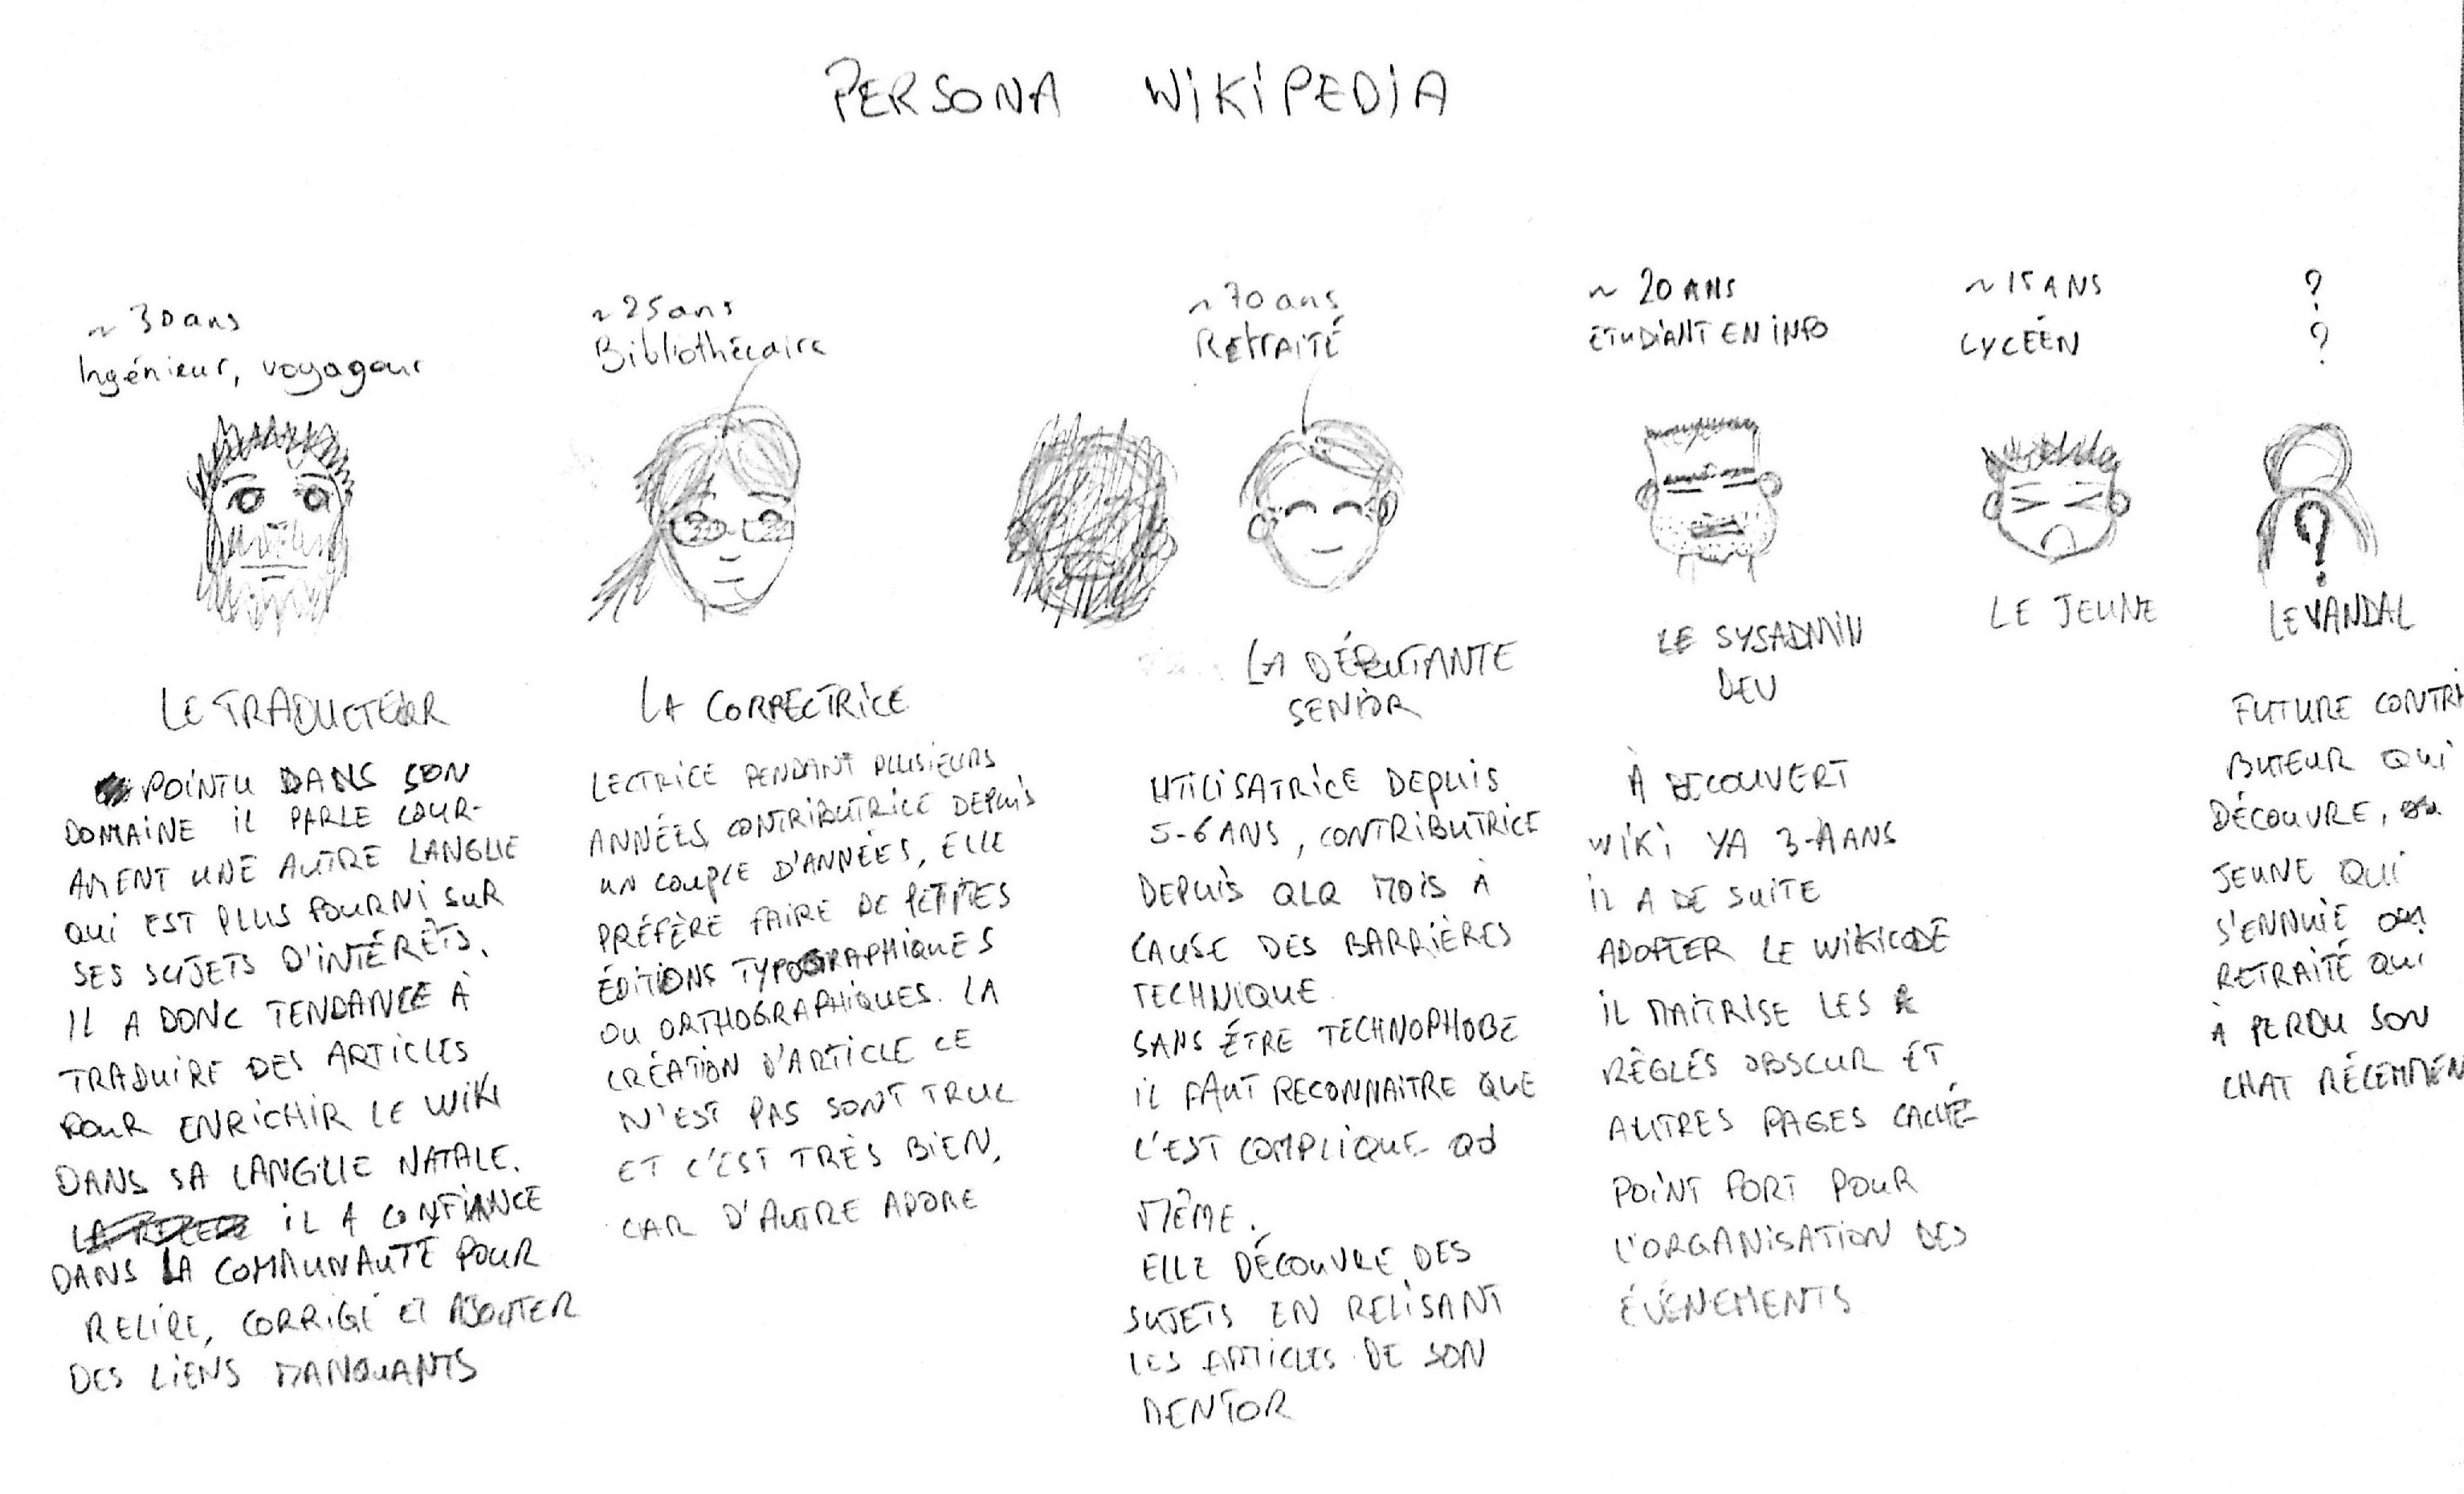 PERSONA WIKIPEDIA
~ 30 ans
Ingénieur, voyageur
LE TRADUCTEUR
POINTU DANS SON
DOMAINE IL PARLE COUR-
AMENT UNE AUTRE LANGUE
QUI EST PLUS FOURNI SUR
SES SUJETS D'INTÉRÊTS.
IL A DONC TENDANCE À
TRADUIRE DES ARTICLES
POUR ENRICHIR LE WIKI
DANS SA LANGUE NATALE.
IL A CONFIANCE
DANS LA COMMUNAUTÉ POUR
RELIRE, CORRIGÉ ET AJOUTER
DES LIENS MANQUANTS
~ 25 ans
Bibliothécaire
LA CORRECTRICE
LECTRICE PENDANT PLUSIEURS
ANNÉES, CONTRIBUTRICE DEPUIS
UN COUPLE D'ANNÉES, ELLE
PRÉFÈRE FAIRE DE PETITES
ÉDITIONS TYPOGRAPHIQUES
OU ORTHOGRAPHIQUES. LA
CRÉATION D'ARTICLE CE
N'EST PAS SONT TRUC
ET C'EST TRÈS BIEN,
CAR D'AUTRE ADORE
~ 70 ans
RETRAITÉ
LA DÉBUTANTE
SENIOR
UTILISATRICE DEPUIS
5-6 ANS, CONTRIBUTRICE
DEPUIS QLQ MOIS À
CAUSE DES BARRIÈRES
TECHNIQUE.
SANS ÊTRE TECHNOPHOBE
IL FAUT RECONNAITRE QUE
C'EST COMPLIQUE QD
MÊME.
ELLE DÉCOUVRE DES
SUJETS EN RELISANT
LES ARTICLES DE SON
MENTOR
~ 20 ANS
ETUDIANT EN INFO
LE SYSADMIN
DEV
À DECOUVERT
WIKI YA 3-4 ANS
IL A DE SUITE
ADOPTER LE WIKICODE
IL MAITRISE LES
RÈGLES OBSCUR ET
AUTRES PAGES CACHÉ
POINT FORT POUR
L'ORGANISATION DES
ÉVÉNEMENTS
~ 15 ANS
LYCÉEN
LE JEUNE
?
?
?
LE VANDAL
FUTURE CONTRI
BUTEUR QUI
DÉCOUVRE,
JEUNE QUI
S'ENNUIE OU
RETRAITÉ QUI
À PERDU SON
CHAT RÉCEMMEN